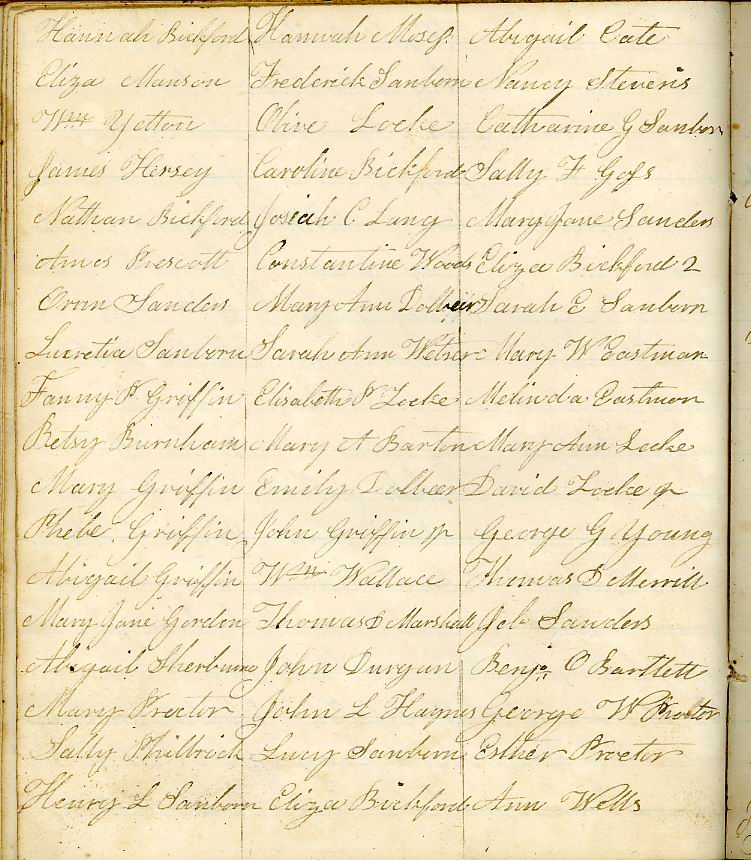 Hannah Bickford Hannah Moses Abigail Cate
Eliza Manson Frederick Sanborn Nancy Stevens
Wm Yetton Olive Locke Catharine G Sanborn
James Hersey Caroline Bickford Sally F Goss
Nathan Bickford Josiah C Lang Mary Jane Sanders
Amos Prescott Constantine Woods Eliza Bickford 2
Orrin Sanders Mary Ann Dolbeer Sarah E Sanborn
Lucretia Sanborn Sarah Ann Webser Mary W Eastman
Fanny P Griffin Elisabeth P Locke Melinda Eastman
Betsy Burnham Mary A Barton Mary Ann Locke
Mary Griffin Emily Dolbeer David Locke jr
Phebe Griffin John Griffin jr George G Young
Abigail Griffin Wm Wallace Thomas D Merrill
Mary Jane Gordon Thomas D Marshall Job Sanders
Abigail Sherburne John Durgan Benja O Bartlett
Mary Proctor John L Haynes George W Proctor
Sally Philbrick Lucy Sanborn Esther Proctor
Henry L Sanborn Eliza Bickford Ann Wells